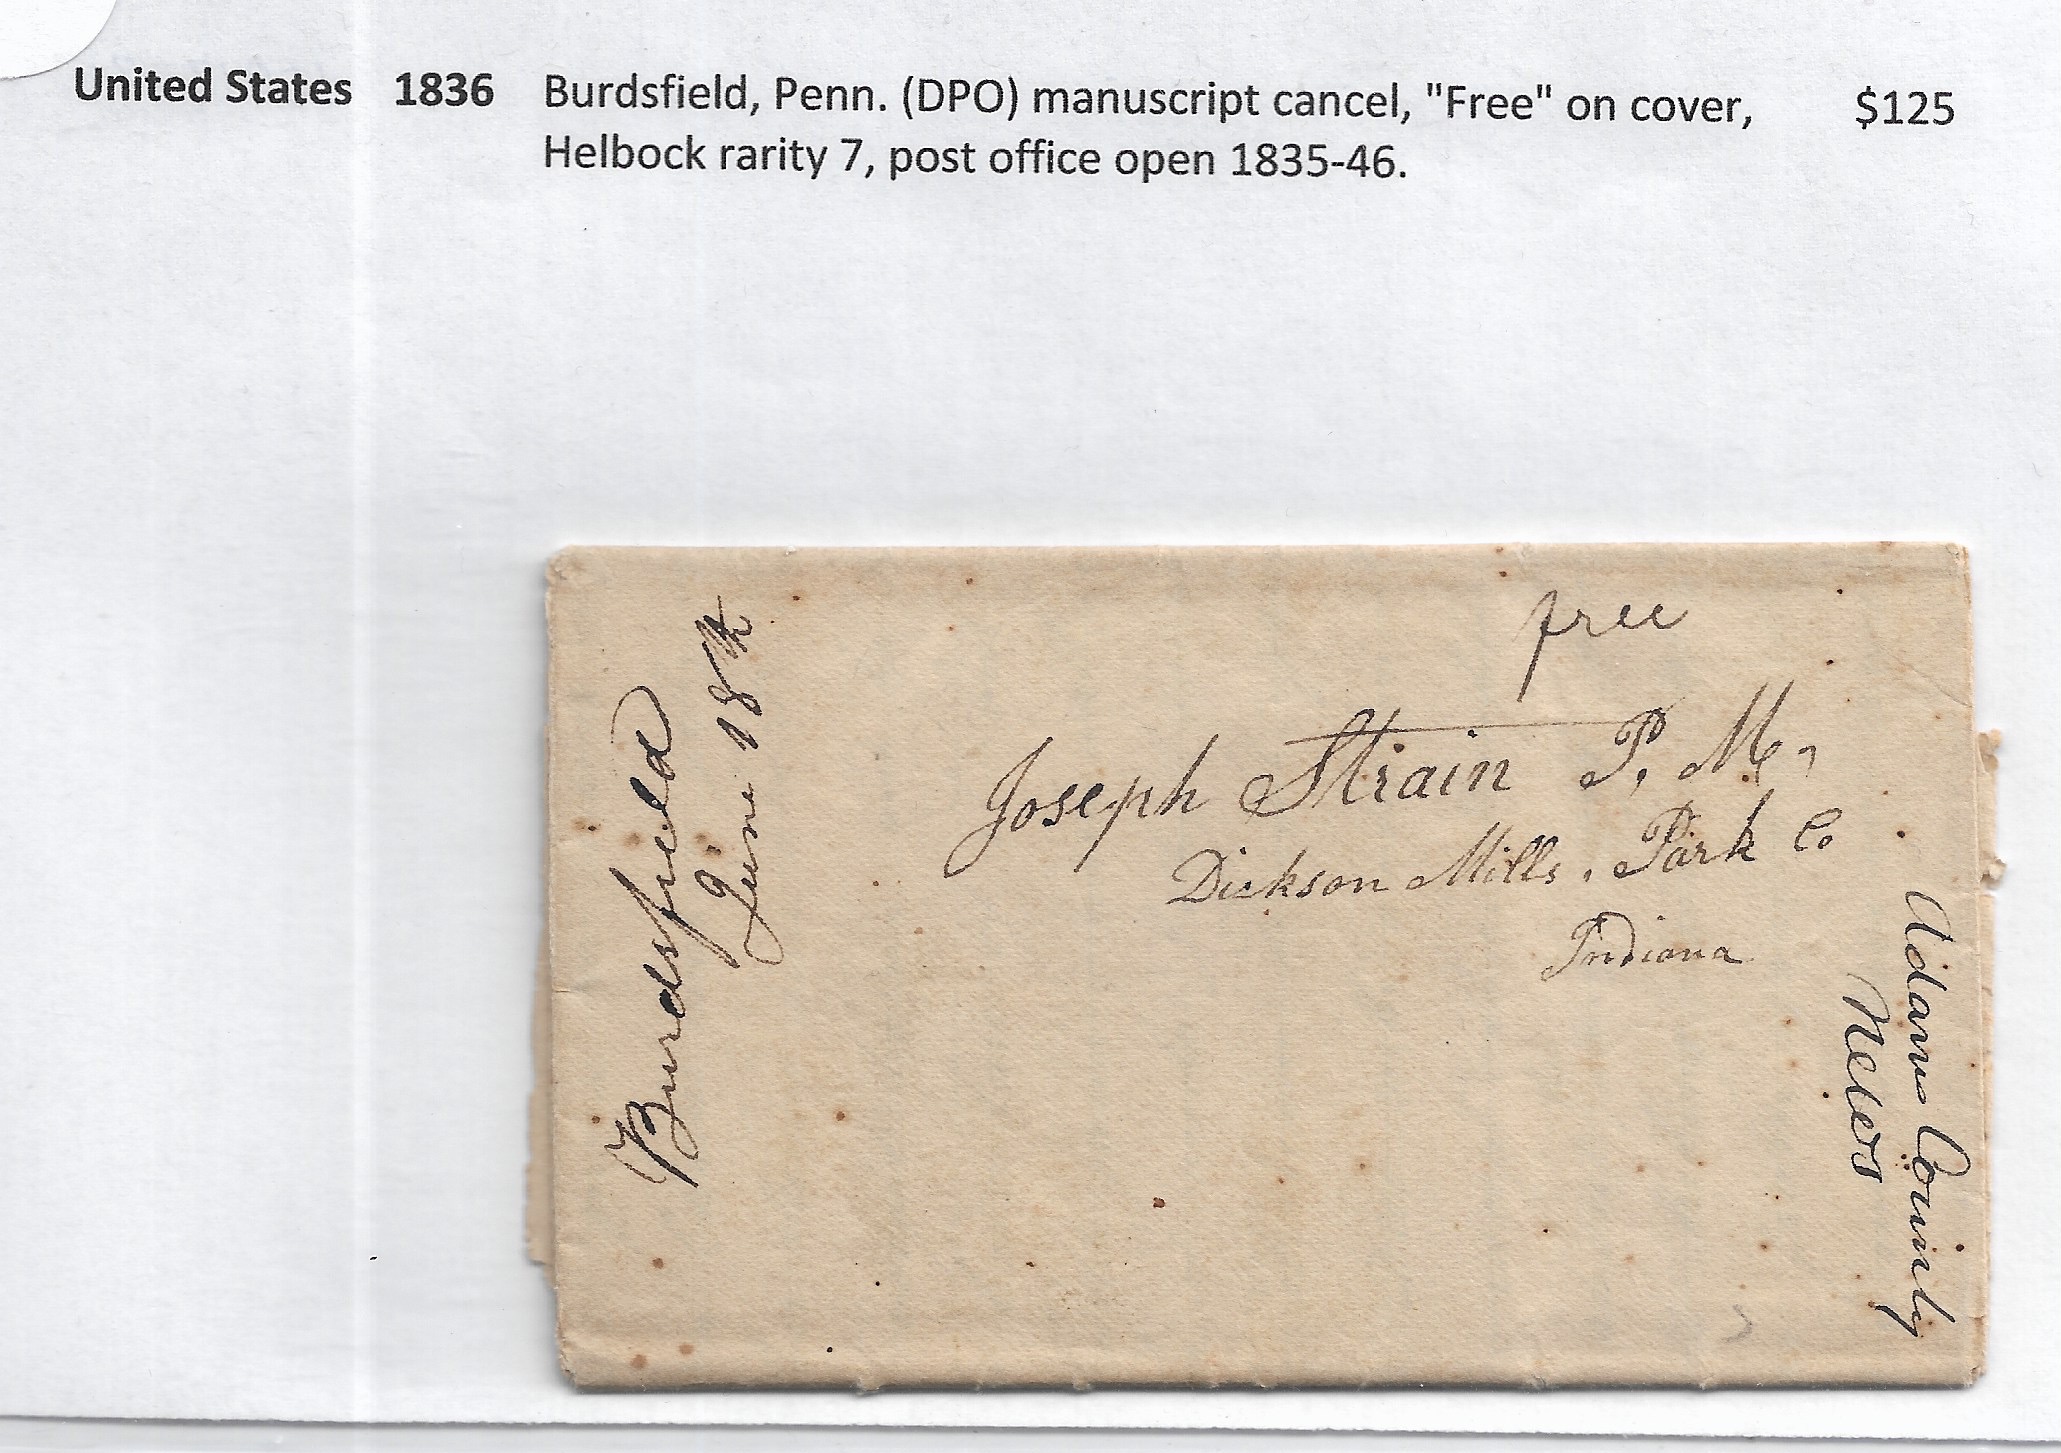 United States 1836 Burdsfield, Penn. (DPO) manuscript cancel, "Free" on cover, $125
Helbock rarity 7, post office open 1835-46.
Burdsfield
June 18th
free
Joseph Strain P. M.,
Dickson Mills, Park Co
Indiana
Adams County
News